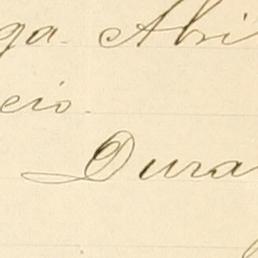 ga. Abri
cio.
Dura